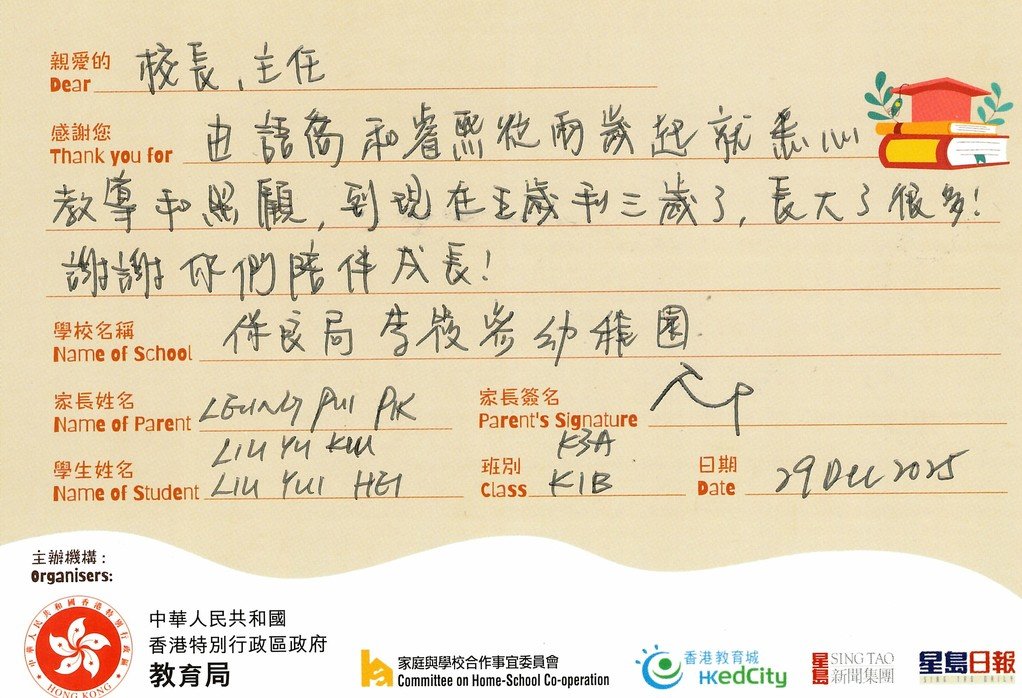 親愛的
Dear 校長,主任
感謝您
Thank you for 由語喬和睿熙從兩歲起就悉心
教導和照顧,到現在五歲和三歲了,長大了很多!
謝謝你們陪伴成長!
學校名稱
Name of School 保良局李筱參幼稚園
家長姓名
Name of Parent LEUNG PUI PIK
家長簽名
Parent's Signature
學生姓名
Name of Student LIU YU KIU
LIU YUI HEI
班別
Class K3A
K1B
日期
Date 29 Dec 2025
主辦機構:
Organisers:
中華人民共和國香港特別行政區
HONG KONG
中華人民共和國
香港特別行政區政府
教育局
家庭與學校合作事宜委員會
Committee on Home-School Co-operation
香港教育城
HKedCity
星島 SING TAO
新聞集團
星島日報
SING TAO DAILY